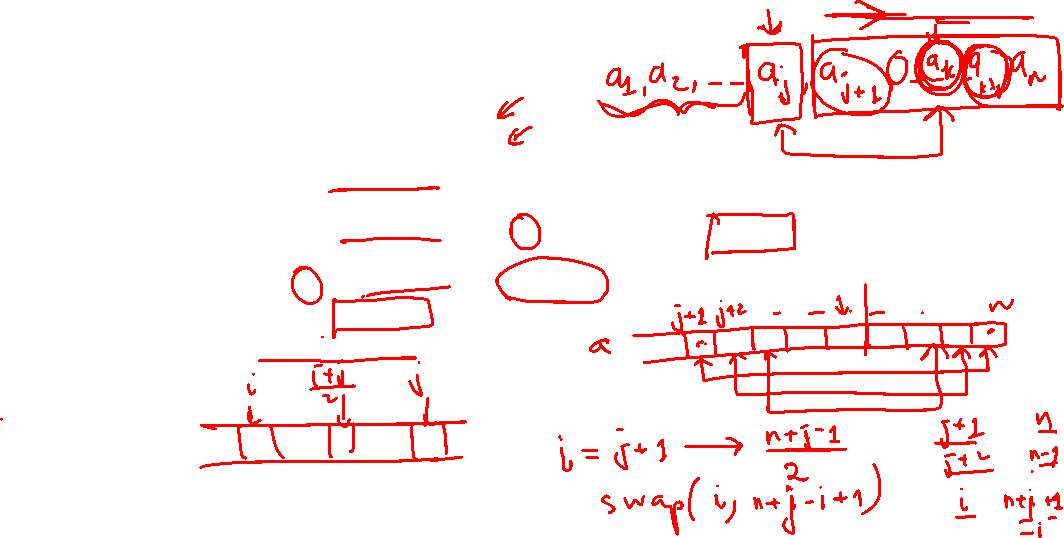 a₁, a₂, -- a_j, a_{j+1} a_k a_{k+1} a_n
j+1 j+2 - - - . n
a
i (i+j)/2 j
i = j+1 → (n+j-1)/2
swap(i, n+j-i+1)
j+1 n
j+2 n-1
i n+j+1-i